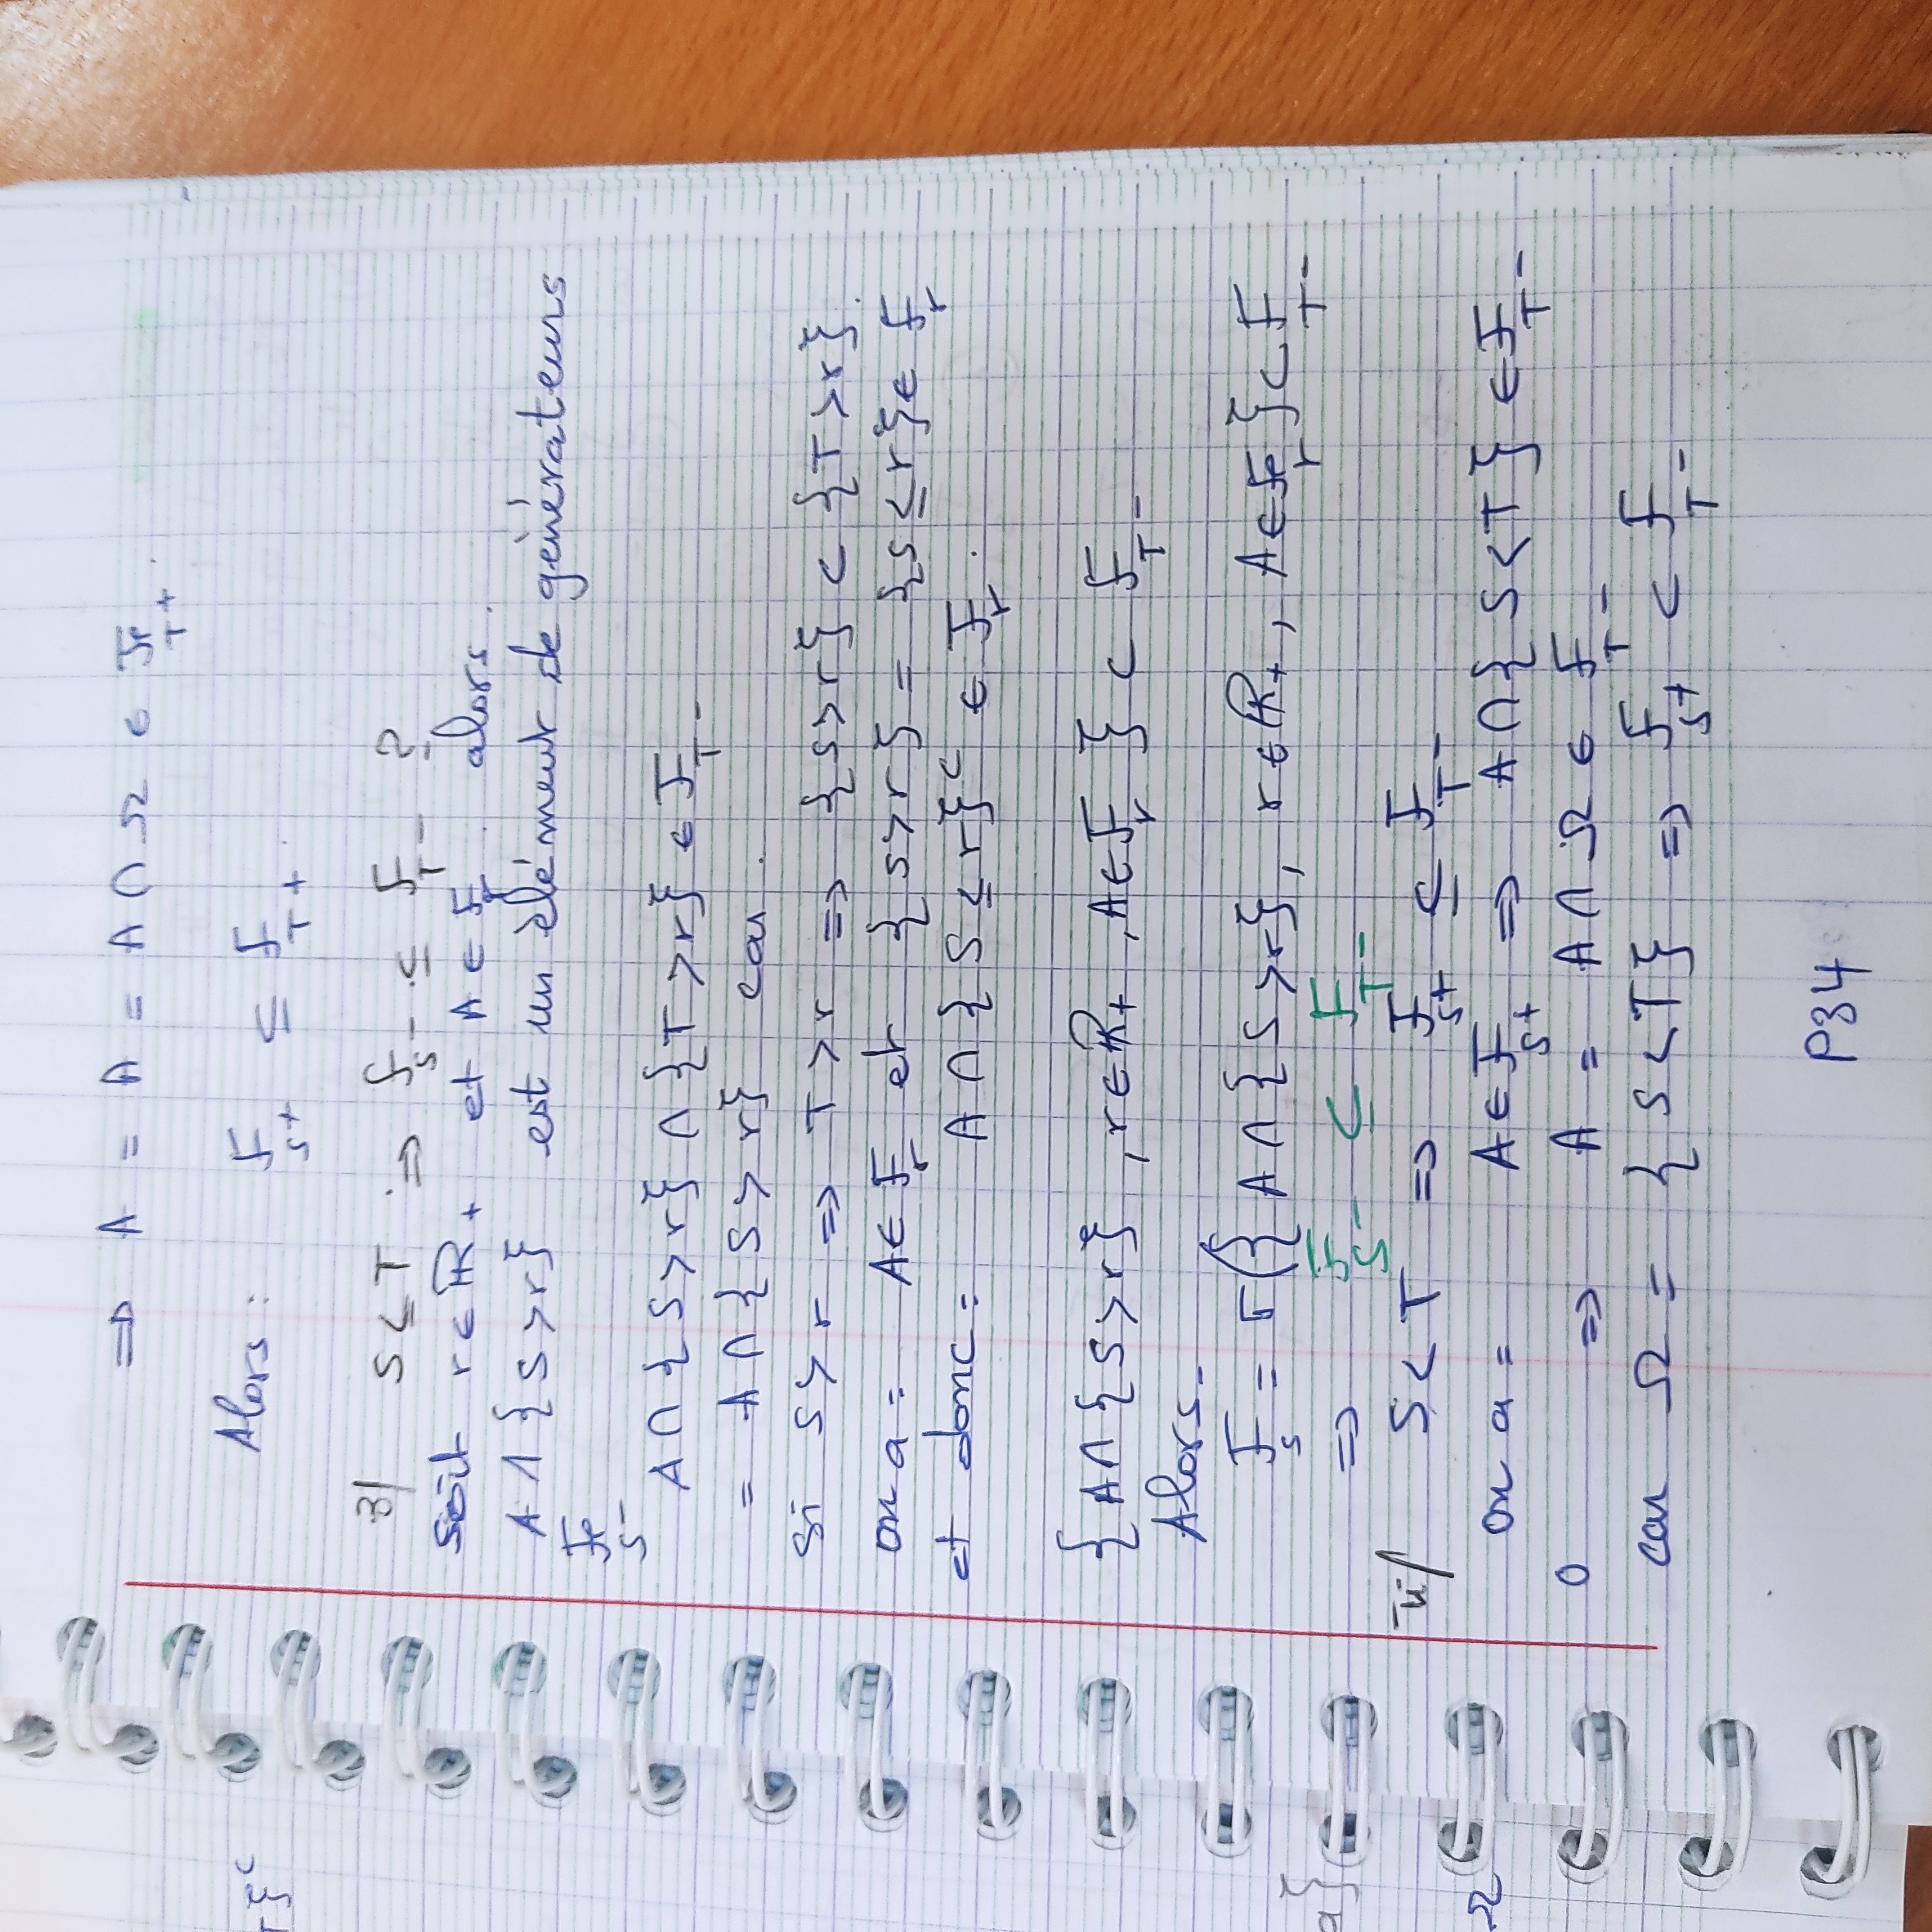 ⇒ A = A = A ∩ Ω ∈ F_T+.
Alors : F_S+ ⊆ F_T+.
3/ S ≤ T ⇒ F_S- ⊆ F_T- ?
soit r ∈ ℝ+ et A ∈ F_r. alors.
A ∩ {S > r} est un élément de générateurs
F_S-
A ∩ {S > r} ∩ {T > r} ∈ F_T-
= A ∩ {S > r} car.
si S > r ⇒ T > r ⇒ {S > r} ⊂ {T > r}.
on a = A ∈ F_r et {S > r} = {S ≤ r} ∈ F_r
et donc = A ∩ {S ≤ r}^c ∈ F_r.
{A ∩ {S > r}, r ∈ ℝ+, A ∈ F_r} ⊂ F_T-
Alors-
F_S = σ({A ∩ {S > r}, r ∈ ℝ+, A ∈ F_r} ⊂ F_T-
⇒ F_S- ⊆ F_T-
S < T ⇒ F_S+ ⊆ F_T-
on a = A ∈ F_S+ ⇒ A ∩ {S < T} ∈ F_T-
⇒ A = A ∩ Ω ∈ F_T-
car Ω = {S < T} ⇒ F_S+ ⊂ F_T-
P34